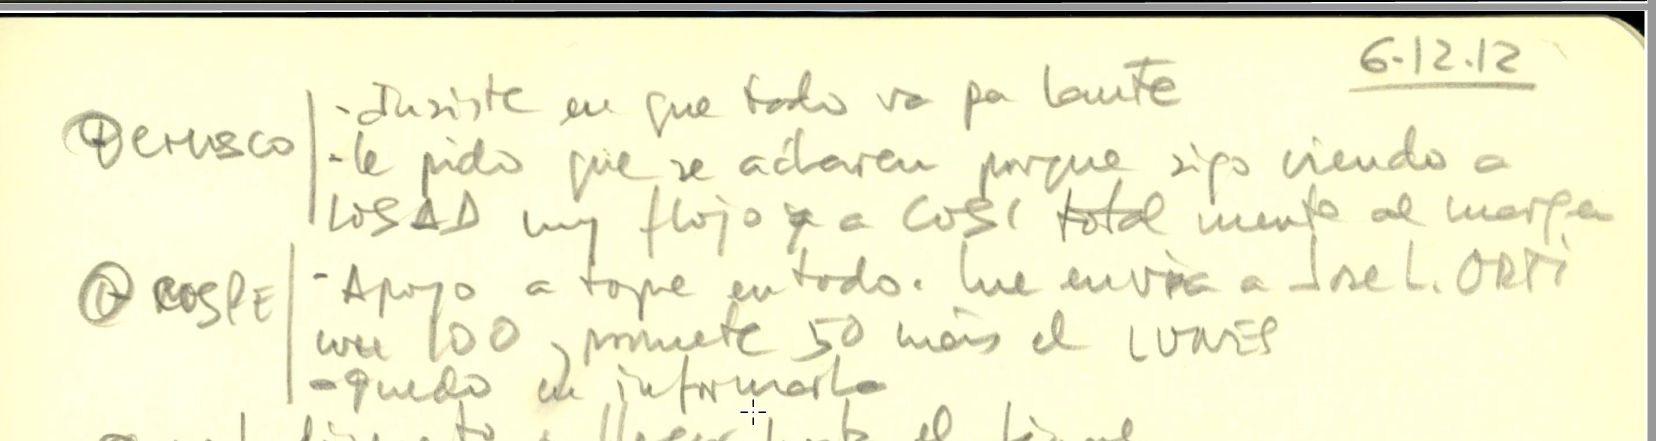 6.12.12
- Insiste en que todo va pa lante
① CHUSCO - le pido que se aclaren porque sigo viendo a
muy flojo y a COSI totalmente al margen
① COSPE - Apoyo a tope en todo. Me envia a Jose L. ORTI
con 100, promete 50 más el LUNES
- quedo en informarla